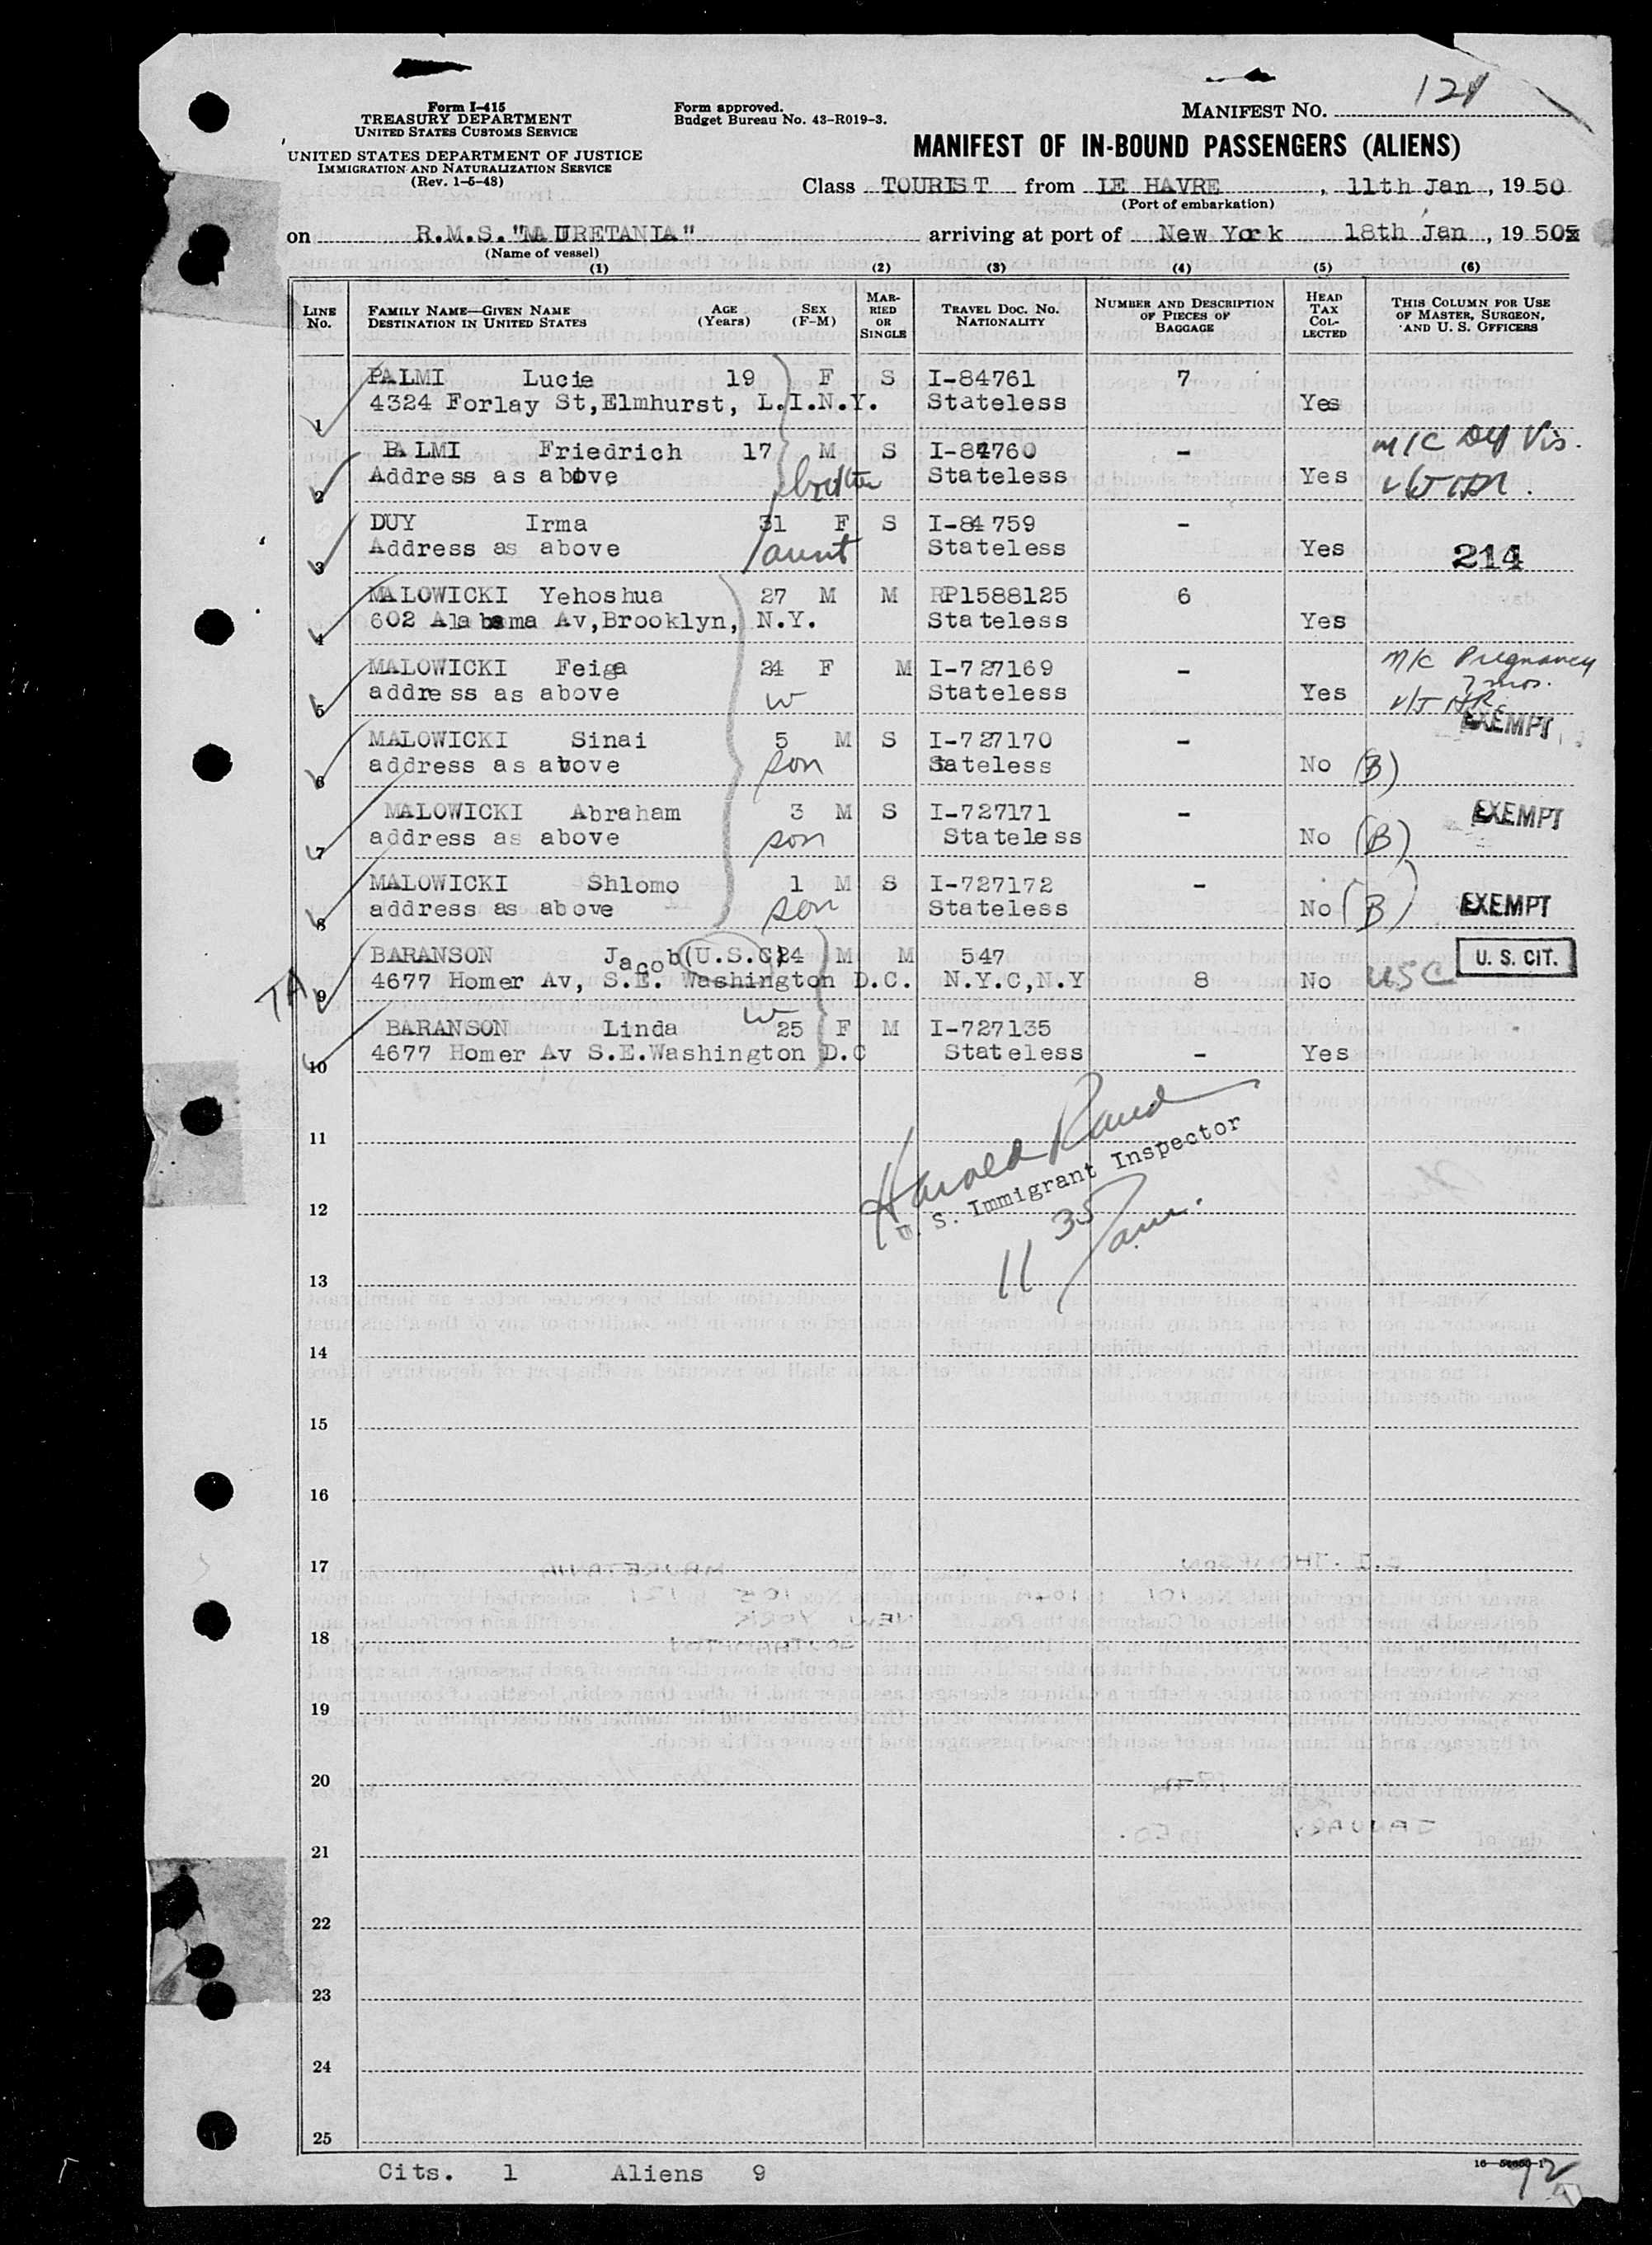 Form I-415
TREASURY DEPARTMENT
UNITED STATES CUSTOMS SERVICE
UNITED STATES DEPARTMENT OF JUSTICE
IMMIGRATION AND NATURALIZATION SERVICE
(Rev. 1-5-48)
Form approved.
Budget Bureau No. 43-R019-3.
MANIFEST NO. 121
MANIFEST OF IN-BOUND PASSENGERS (ALIENS)
Class TOURIST from LE HAVRE, 11th Jan, 1950
(Port of embarkation)
on R.M.S."MAURETANIA" arriving at port of New York 18th Jan, 1950
(Name of vessel)
(1) (2) (3) (4) (5) (6)
LINE No. FAMILY NAME—GIVEN NAME DESTINATION IN UNITED STATES AGE (Years) SEX (F-M) MARRIED OR SINGLE TRAVEL DOC. NO. NATIONALITY NUMBER AND DESCRIPTION OF PIECES OF BAGGAGE HEAD TAX COLLECTED THIS COLUMN FOR USE OF MASTER, SURGEON, AND U. S. OFFICERS
PALMI Lucie 19 F S I-84761 7
1 4324 Forlay St,Elmhurst, L.I.N.Y. Stateless Yes
PALMI Friedrich 17 M S I-84760 - M/C Def Vis.
2 Address as above brother Stateless Yes
DUY Irma 31 F S I-84759 -
3 Address as above aunt Stateless Yes 214
MALOWICKI Yehoshua 27 M M RP1588125 6
4 602 Alabama Av,Brooklyn, N.Y. Stateless Yes
MALOWICKI Feiga 24 F M I-727169 - M/C Pregnancy 7 mos.
5 address as above w Stateless Yes
EXEMPT
MALOWICKI Sinai 5 M S I-727170 -
6 address as above son Stateless No (B)
MALOWICKI Abraham 3 M S I-727171 - EXEMPT
7 address as above son Stateless No (B)
MALOWICKI Shlomo 1 M S I-727172 -
8 address as above son Stateless No (B) EXEMPT
BARANSON Jacob(U.S.C)24 M M 547 U. S. CIT.
TA 9 4677 Homer Av, S.E. Washington D.C. N.Y.C,N.Y 8 No USC
BARANSON Linda w 25 F M I-727135
10 4677 Homer Av S.E.Washington D.C Stateless - Yes
11
Harold Rand
U. S. Immigrant Inspector
12
11 35 am.
13
14
15
16
17
18
19
20
21
22
23
24
25
Cits. 1 Aliens 9